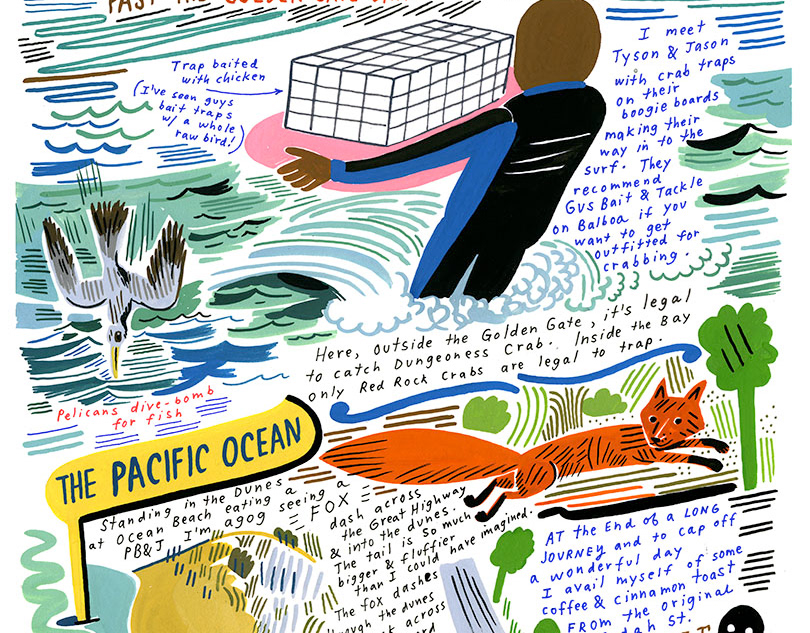 PAST THE GOLDEN GATE
Trap baited
with chicken
(I've seen guys
bait traps
w/ a whole
raw bird!)
I meet
Tyson & Jason
with crab traps
on their
boogie boards
making their
way in to the
surf. They
recommend
Gus Bait & Tackle
on Balboa if you
want to get
outfitted for
crabbing.
Here, outside the Golden Gate, it's legal
to catch Dungeoness Crab. Inside the Bay
only Red Rock Crabs are legal to trap.
Pelicans dive-bomb
for fish
THE PACIFIC OCEAN
Standing in the Dunes
at Ocean Beach eating a
PB&J I'm agog seeing a
FOX
dash across
the Great Highway
& into the dunes.
The tail is so much
bigger & fluffier
than I could have imagined.
The fox dashes
through the dunes
across
AT the End of a LONG
JOURNEY and to cap off
a wonderful day
I avail myself of some
coffee & cinnamon toast
FROM the original
St.